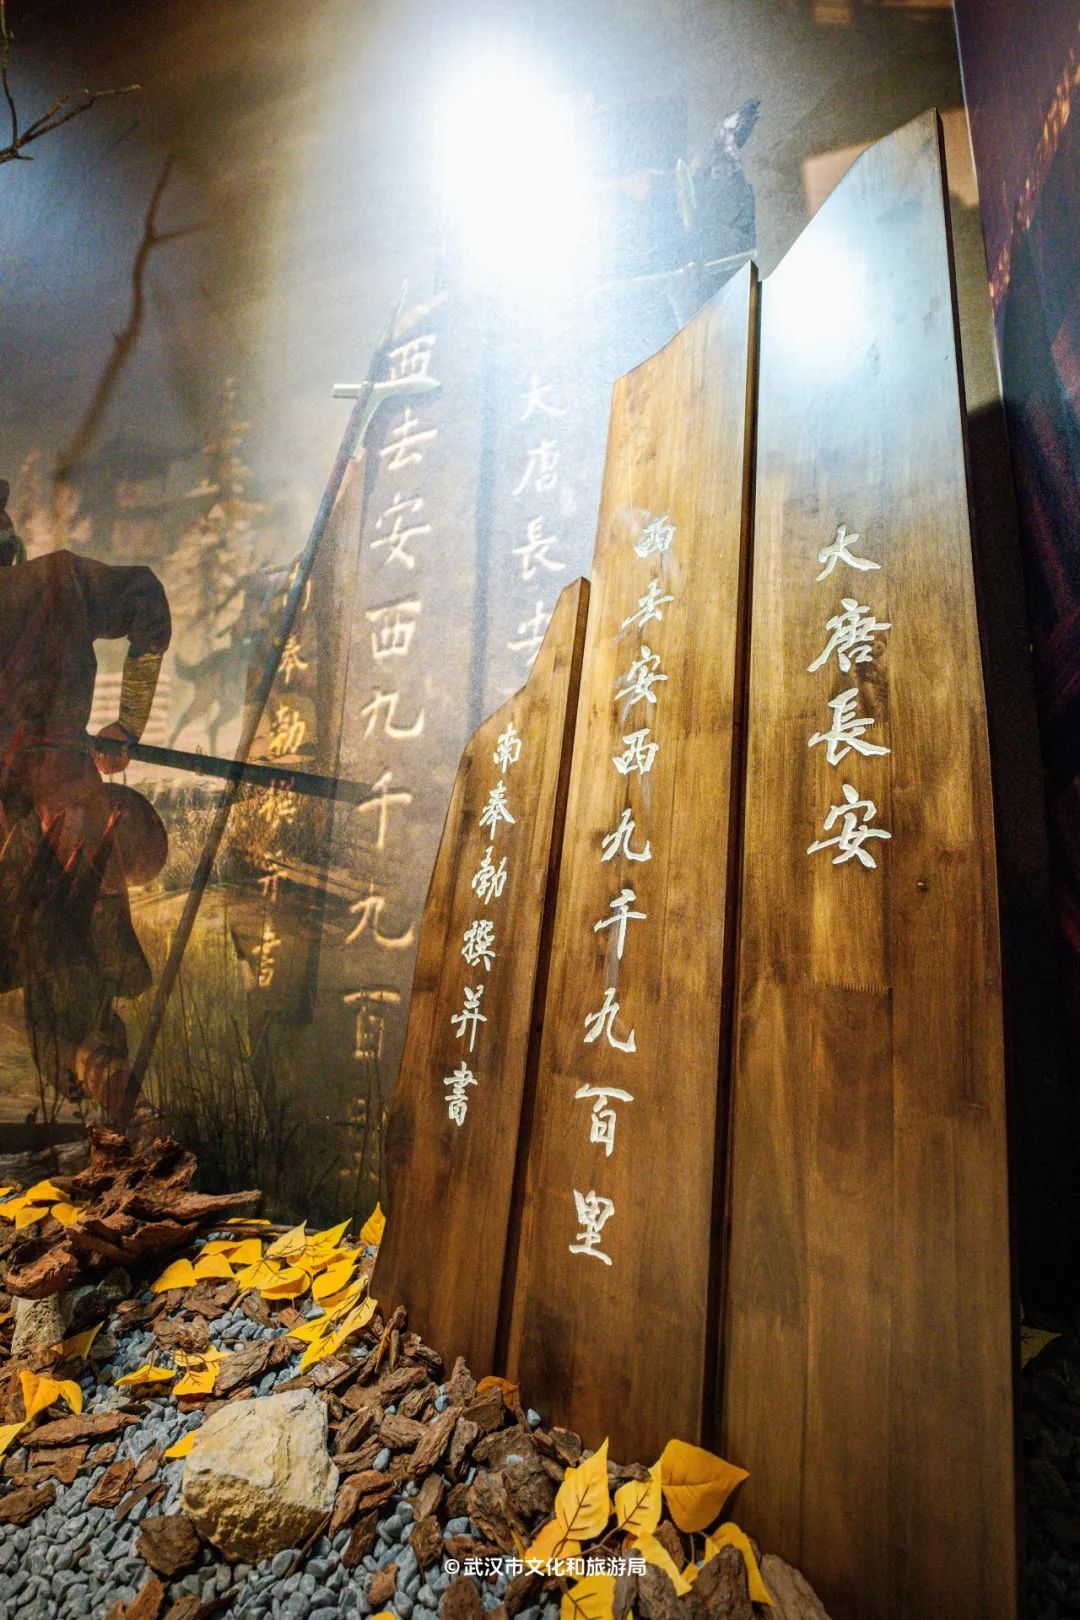 大唐長安
西去安西九千九百里
南奉勅撰并書
大唐長安
西去安西九千九百
奉勅撰并書
© 武汉市文化和旅游局